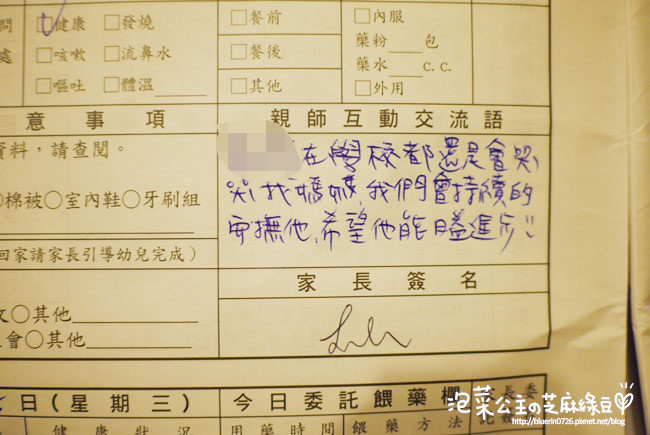 問 ☑健康 □發燒 □餐前 □內服
處 □咳嗽 □流鼻水 □餐後 藥粉___包
□嘔吐 □體溫____ □其他 藥水___c.c.
□外用
意事項 親師互動交流語
資料，請查閱。
在學校都還是會哭,
哭找媽媽,我們會持續的
安撫他,希望他能日益進步!!
棉被○室內鞋○牙刷組
回家請家長引導幼兒完成）
家長簽名
○其他
會○其他
日（星期三） 今日委託餵藥欄
健康狀況 用藥時間 餵藥方法
泡菜公主の芝麻綠豆
http://bluerin0726.pixnet.net/blog